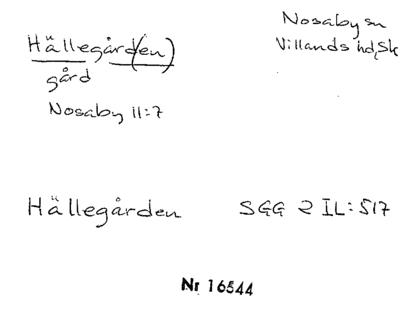 Hällegård(en)
gård
Nosaby 11:7
Nosaby sn
Villands hd, Sk
Hällegården SGG 2 IL:517
Nr 16544